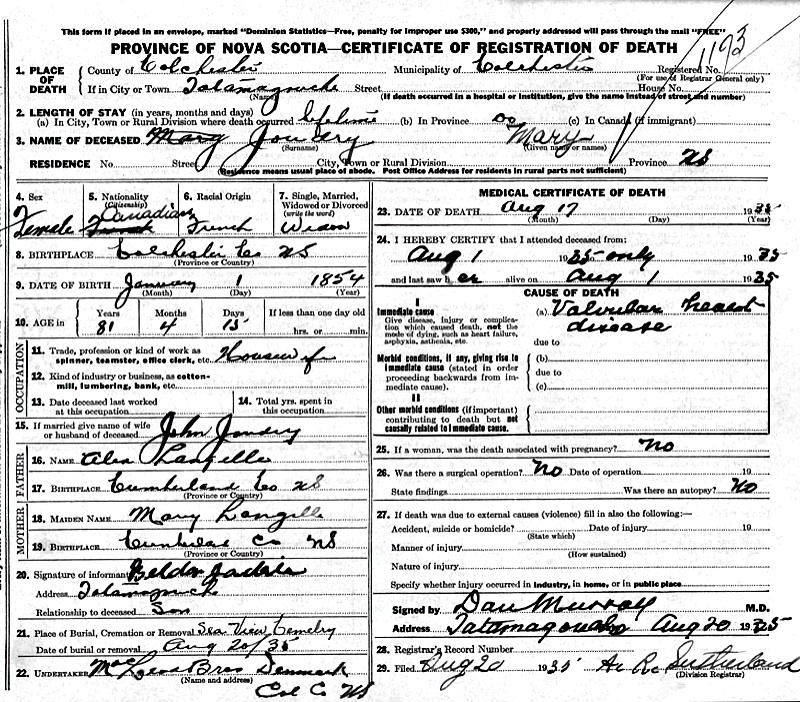 This form if placed in an envelope, marked "Dominion Statistics—Free, penalty for improper use $300," and properly addressed will pass through the mail "FREE"
1193
PROVINCE OF NOVA SCOTIA—CERTIFICATE OF REGISTRATION OF DEATH
1. PLACE OF DEATH { County of Colchester Municipality of Colchester Registered No.
(For use of Registrar General only)
If in City or Town Tatamagouche Street House No.
(Name) (If death occurred in a hospital or institution, give the name instead of street and number)
2. LENGTH OF STAY (in years, months and days)
(a) In City, Town or Rural Division where death occurred Lifetime (b) In Province Do (c) In Canada (if immigrant)
3. NAME OF DECEASED Mary Joudry Mary
(Surname) (Given name or names)
RESIDENCE No. Street City, Town or Rural Division Province NS
(Residence means usual place of abode. Post Office Address for residents in rural parts not sufficient)
4. Sex Female
5. Nationality (Citizenship) Canadian French
6. Racial Origin French
7. Single, Married, Widowed or Divorced (write the word) Widow
8. BIRTHPLACE Colchester Co NS
(Province or Country)
9. DATE OF BIRTH January 1 1854
(Month) (Day) (Year)
10. AGE in Years Months Days If less than one day old
81 4 15 hrs. or min.
OCCUPATION
11. Trade, profession or kind of work as spinner, teamster, office clerk, etc. Housewife
12. Kind of industry or business, as cotton-mill, lumbering, bank, etc.
13. Date deceased last worked at this occupation
14. Total yrs. spent in this occupation
15. If married give name of wife or husband of deceased John Joudry
FATHER
16. NAME Alex Langille
17. BIRTHPLACE Cumberland Co NS
(Province or Country)
MOTHER
18. MAIDEN NAME Mary Langille
19. BIRTHPLACE Cumberland Co NS
(Province or Country)
20. Signature of informant
Address Tatamagouche
Relationship to deceased Son
21. Place of Burial, Cremation or Removal Sea View Cemetry
Date of burial or removal Aug 20/35
22. UNDERTAKER Bros Denmark
(Name and address) Col Co NS
MEDICAL CERTIFICATE OF DEATH
23. DATE OF DEATH Aug 17 1935
(Month) (Day) (Year)
24. I HEREBY CERTIFY that I attended deceased from:
Aug 1 1935 only 1935
and last saw her alive on Aug 1 1935
CAUSE OF DEATH
I
Immediate cause
Give disease, injury or complication which caused death, not the mode of dying, such as heart failure, asphyxia, asthenia, etc.
(a) Valvular heart disease
due to
Morbid conditions, if any, giving rise to immediate cause (stated in order proceeding backwards from immediate cause).
(b)
due to
(c)
II
Other morbid conditions (if important) contributing to death but not causally related to immediate cause.
25. If a woman, was the death associated with pregnancy? No
26. Was there a surgical operation? No Date of operation 19
State findings Was there an autopsy? No
27. If death was due to external causes (violence) fill in also the following:—
Accident, suicide or homicide? Date of injury 19
(State which)
Manner of injury
(How sustained)
Nature of injury
Specify whether injury occurred in industry, in home, or in public place
Signed by Dan Murray M.D.
Address Tatamagouche Aug 20 1935
28. Registrar's Record Number
29. Filed Aug 20 1935 Sutherland
(Division Registrar)